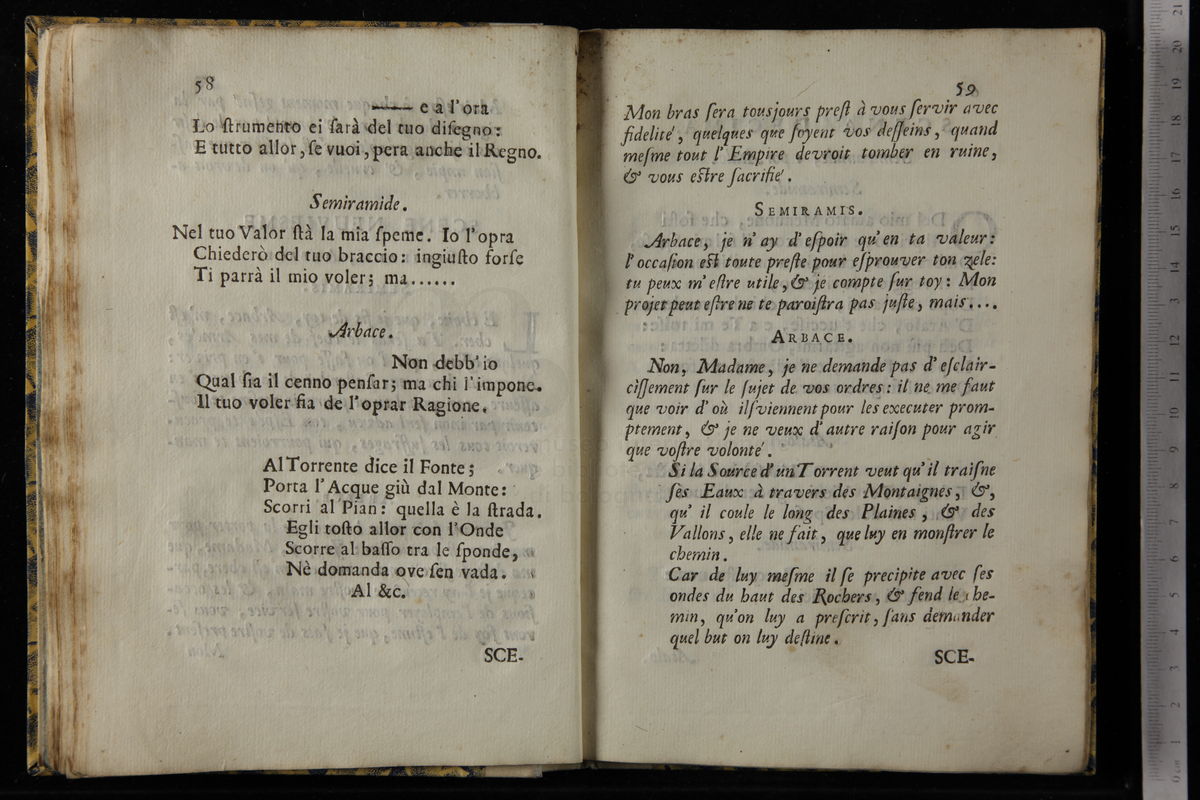 58
e a l'ora
Lo ſtrumento ei ſarà del tuo diſegno:
E tutto allor, ſe vuoi, pera anche il Regno.
Semiramide.
Nel tuo Valor ſtà la mia ſpeme. Io l'opra
Chiederò del tuo braccio: ingiuſto forſe
Ti parrà il mio voler; ma......
Arbace.
Non debb' io
Qual ſia il cenno penſar; ma chi l'impone.
Il tuo voler fia de l'oprar Ragione.
Al Torrente dice il Fonte;
Porta l'Acque giù dal Monte:
Scorri al Pian: quella è la ſtrada.
Egli toſto allor con l'Onde
Scorre al baſſo tra le ſponde,
Nè domanda ove ſen vada.
Al &c.
SCE-
59
Mon bras ſera tousjours preſt à vous ſervir avec
fidelité, quelques que ſoyent vos deſſeins, quand
meſme tout l'Empire devroit tomber en ruine,
& vous eſtre ſacrifié.
SEMIRAMIS.
Arbace, je n'ay d'eſpoir qu'en ta valeur:
l'occaſion eſt toute preſte pour eſprouver ton zele:
tu peux m'eſtre utile, & je compte ſur toy: Mon
projet peut eſtre ne te paroiſtra pas juſte, mais....
ARBACE.
Non, Madame, je ne demande pas d'eſclair-
ciſſement ſur le ſujet de vos ordres: il ne me faut
que voir d'où ilſviennent pour les executer prom-
ptement, & je ne veux d'autre raiſon pour agir
que voſtre volonté.
Si la Source d'un Torrent veut qu'il traiſne
ſes Eaux à travers des Montaignes, &,
qu'il coule le long des Plaines, & des
Vallons, elle ne fait, que luy en monſtrer le
chemin.
Car de luy meſme il ſe precipite avec ſes
ondes du haut des Rochers, & fend le che-
min, qu'on luy a preſcrit, ſans demander
quel but on luy deſtine.
SCE-